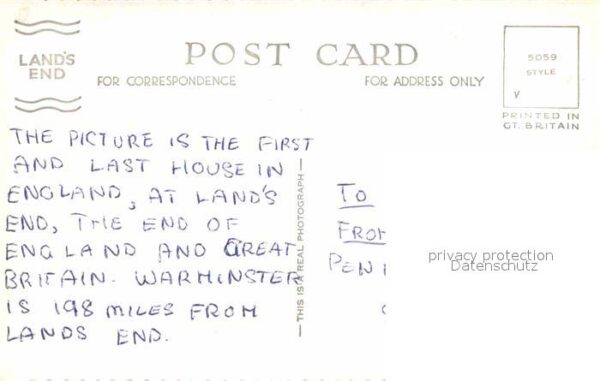 LAND'S
END
POST CARD
FOR CORRESPONDENCE
FOR ADDRESS ONLY
5059
STYLE
V
PRINTED IN
GT. BRITAIN
THE PICTURE IS THE FIRST
AND LAST HOUSE IN
ENGLAND, AT LAND'S
END, THE END OF
ENGLAND AND GREAT
BRITAIN. WARMINSTER
IS 198 MILES FROM
LANDS END.
THIS IS A REAL PHOTOGRAPH
TO
privacy protection
Datenschutz